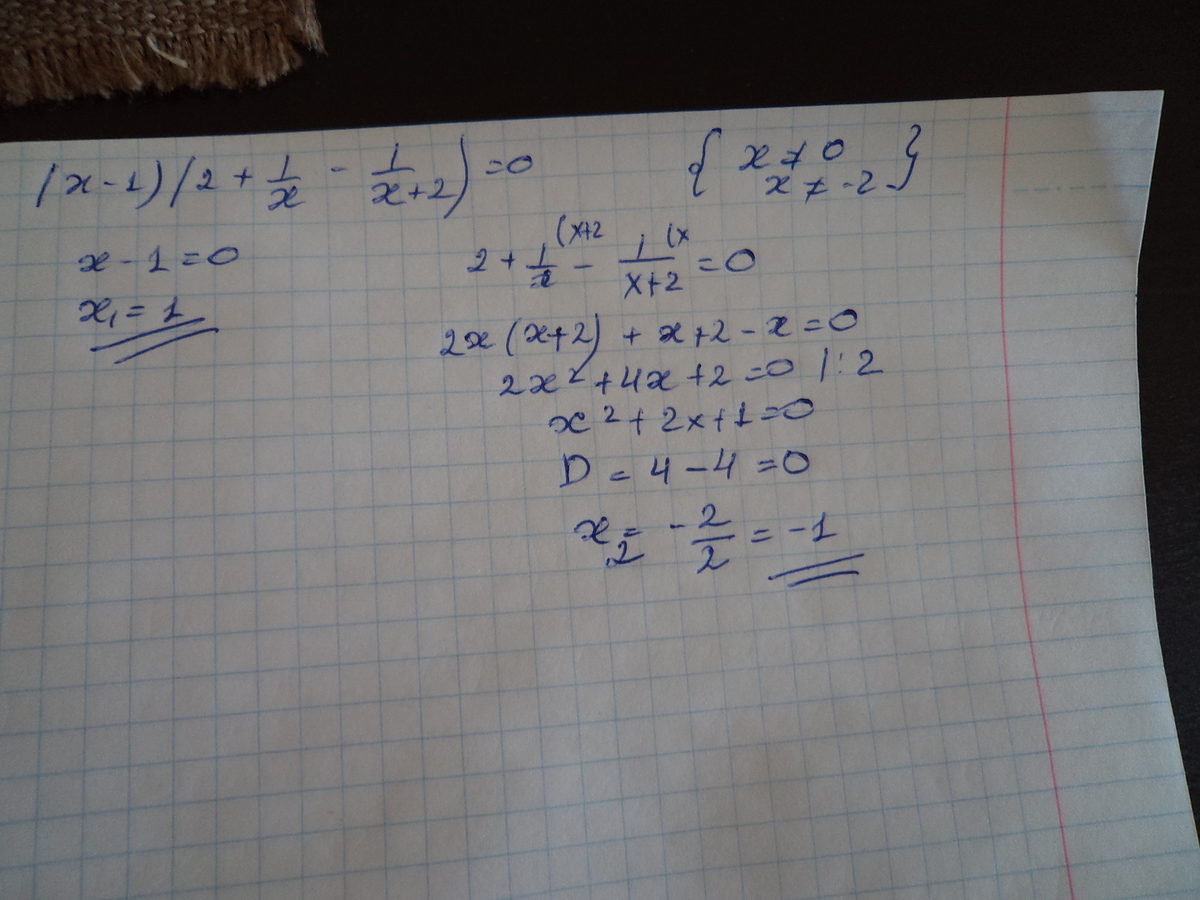 (x-1)(2 + 1/x - 1/(x+2)) = 0 { x ≠ 0 x ≠ -2 }
x - 1 = 0
x₁ = 1
2 + 1/x (x+2 - 1/(x+2) (x = 0
2x(x+2) + x+2-x=0
2x² + 4x + 2 = 0 |:2
x² + 2x + 1 = 0
D = 4 - 4 = 0
x₂ = - 2/2 = -1